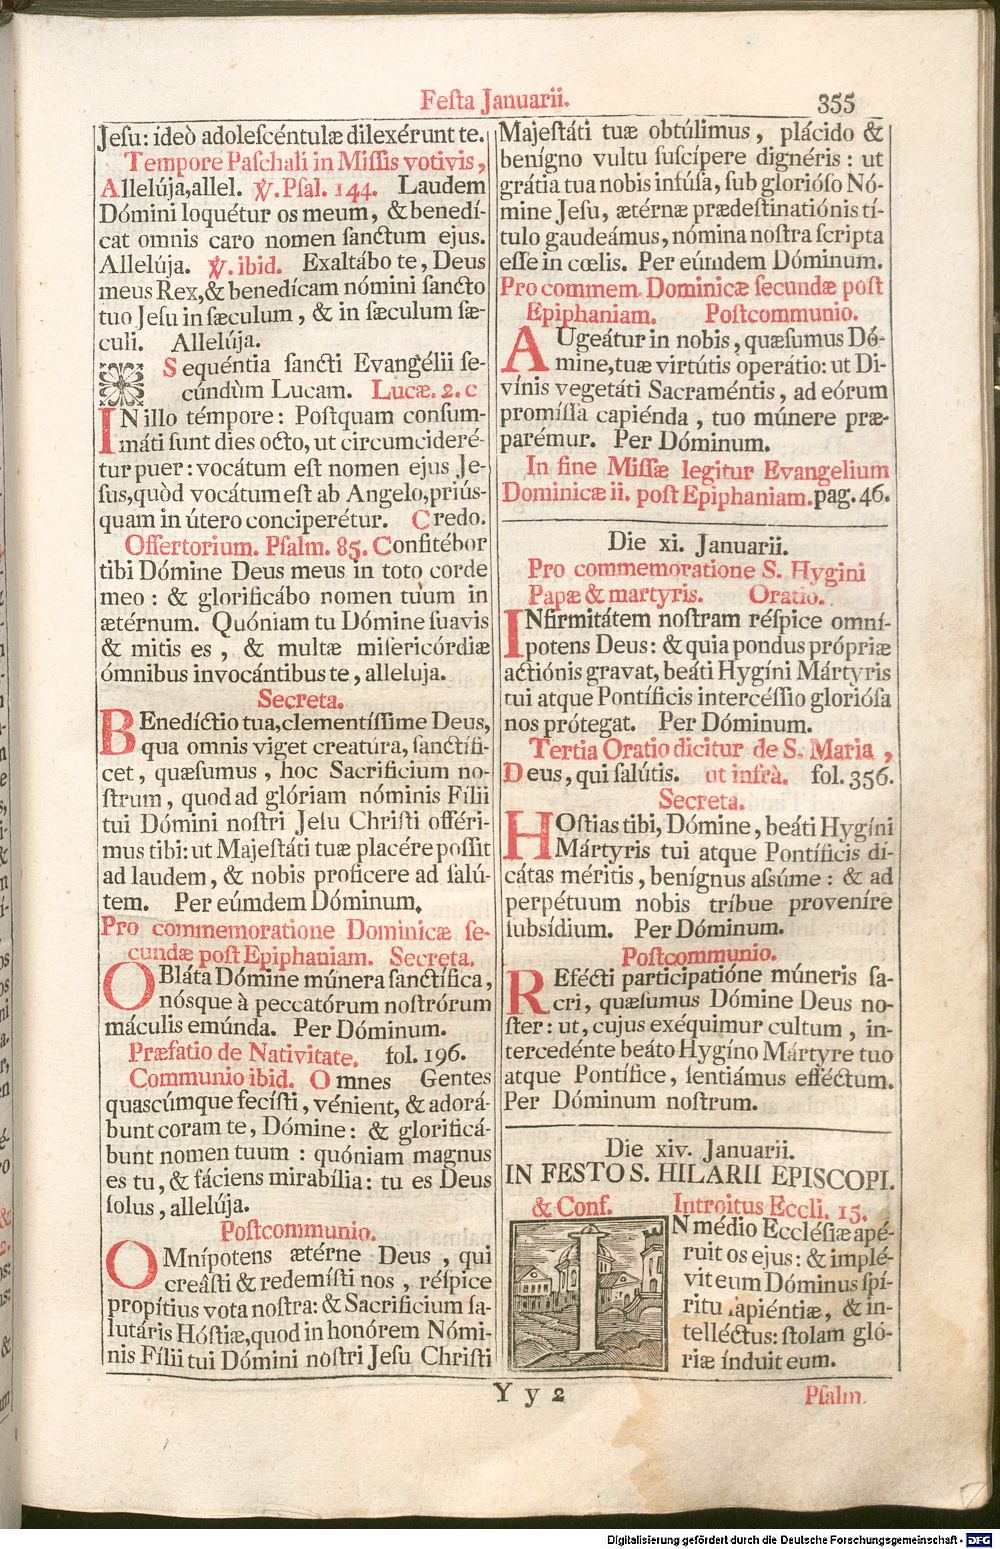 Festa Januarii. 355
Jesu: ideò adolescéntulæ dilexérunt te.
Tempore Paschali in Missis votivis,
Allelúja, allel. ℣. Psal. 144. Laudem
Dómini loquétur os meum, & benedí-
cat omnis caro nomen sanctum ejus.
Allelúja. ℣. ibid. Exaltábo te, Deus
meus Rex, & benedícam nómini sancto
tuo Jesu in sæculum, & in sæculum sæ-
culi. Allelúja.
Sequéntia sancti Evangélii se-
cúndùm Lucam. Lucæ. 2. c
IN illo témpore: Postquam consum-
máti sunt dies octo, ut circumcideré-
tur puer: vocátum est nomen ejus Je-
sus, quòd vocátum est ab Angelo, priús-
quam in útero conciperétur. Credo.
Offertorium. Psalm. 85. Confitébor
tibi Dómine Deus meus in toto corde
meo: & glorificábo nomen tuum in
ætérnum. Quóniam tu Dómine suavis
& mitis es, & multæ misericórdiæ
ómnibus invocántibus te, alleluja.
Secreta.
BEnedíctio tua, clementíssime Deus,
qua omnis viget creatúra, sanctífi-
cet, quæsumus, hoc Sacrificium no-
strum, quod ad glóriam nóminis Fílii
tui Dómini nostri Jesu Christiofféri-
mus tibi: ut Majestáti tuæ placére possit
ad laudem, & nobis proficere ad salú-
tem. Per eúmdem Dóminum.
Pro commemoratione Dominicæ se-
cundæ post Epiphaniam. Secreta.
OBláta Dómine múnera sanctífica,
nósque à peccatórum nostrórum
máculis emúnda. Per Dóminum.
Præfatio de Nativitate. fol. 196.
Communio ibid. Omnes Gentes
quascúmque fecísti, vénient, & adorá-
bunt coram te, Dómine: & glorificá-
bunt nomen tuum: quóniam magnus
es tu, & fáciens mirabília: tu es Deus
solus, allelúja.
Postcommunio.
OMnípotens ætérne Deus, qui
creâsti & redemísti nos, réspice
propítius vota nostra: & Sacrificium sa-
lutáris Hóstiæ, quod in honórem Nómi-
nis Fílii tui Dómini nostri Jesu Christi
Majestáti tuæ obtúlimus, plácido &
benígno vultu suscípere dignéris: ut
grátia tua nobis infúsa, sub glorióso Nó-
mine Jesu, ætérnæ prædestinatiónis tí-
tulo gaudeámus, nómina nostra scripta
esse in cœlis. Per eúmdem Dóminum.
Pro commem. Dominicæ secundæ post
Epiphaniam. Postcommunio.
AUgeátur in nobis, quæsumus Dó-
mine, tuæ virtútis operátio: ut Di-
vínis vegetáti Sacraméntis, ad eórum
promíssa capiénda, tuo múnere præ-
parémur. Per Dóminum.
In fine Missæ legitur Evangelium
Dominicæ ii. post Epiphaniam. pag. 46.
Die xi. Januarii.
Pro commemoratione S. Hygini
Papæ & martyris. Oratio.
INfirmitátem nostram réspice omní-
potens Deus: & quia pondus própriæ
actiónis gravat, beáti Hygíni Mártyris
tui atque Pontíficis intercéssio gloriósa
nos prótegat. Per Dóminum.
Tertia Oratio dicitur de S. Maria,
Deus, qui salútis. ut infrà. fol. 356.
Secreta.
HOstias tibi, Dómine, beáti Hygíni
Mártyris tui atque Pontíficis di-
cátas méritis, benígnus assúme: & ad
perpétuum nobis tríbue provenire
subsídium. Per Dóminum.
Postcommunio.
REfécti participatióne múneris sa-
cri, quæsumus Dómine Deus no-
ster: ut, cujus exéquimur cultum, in-
tercedénte beáto Hygíno Mártyre tuo
atque Pontífice, sentiámus efféctum.
Per Dóminum nostrum.
Die xiv. Januarii.
IN FESTO S. HILARII EPISCOPI.
& Conf. Introitus Eccli. 15.
IN médio Ecclésiæ apé-
ruit os ejus: & implé-
vit eum Dóminus spí-
ritu sapiéntiæ, & in-
telléctus: stolam gló-
riæ índuit eum.
Y y 2 Psalm.
Digitalisierung gefördert durch die Deutsche Forschungsgemeinschaft - DFG